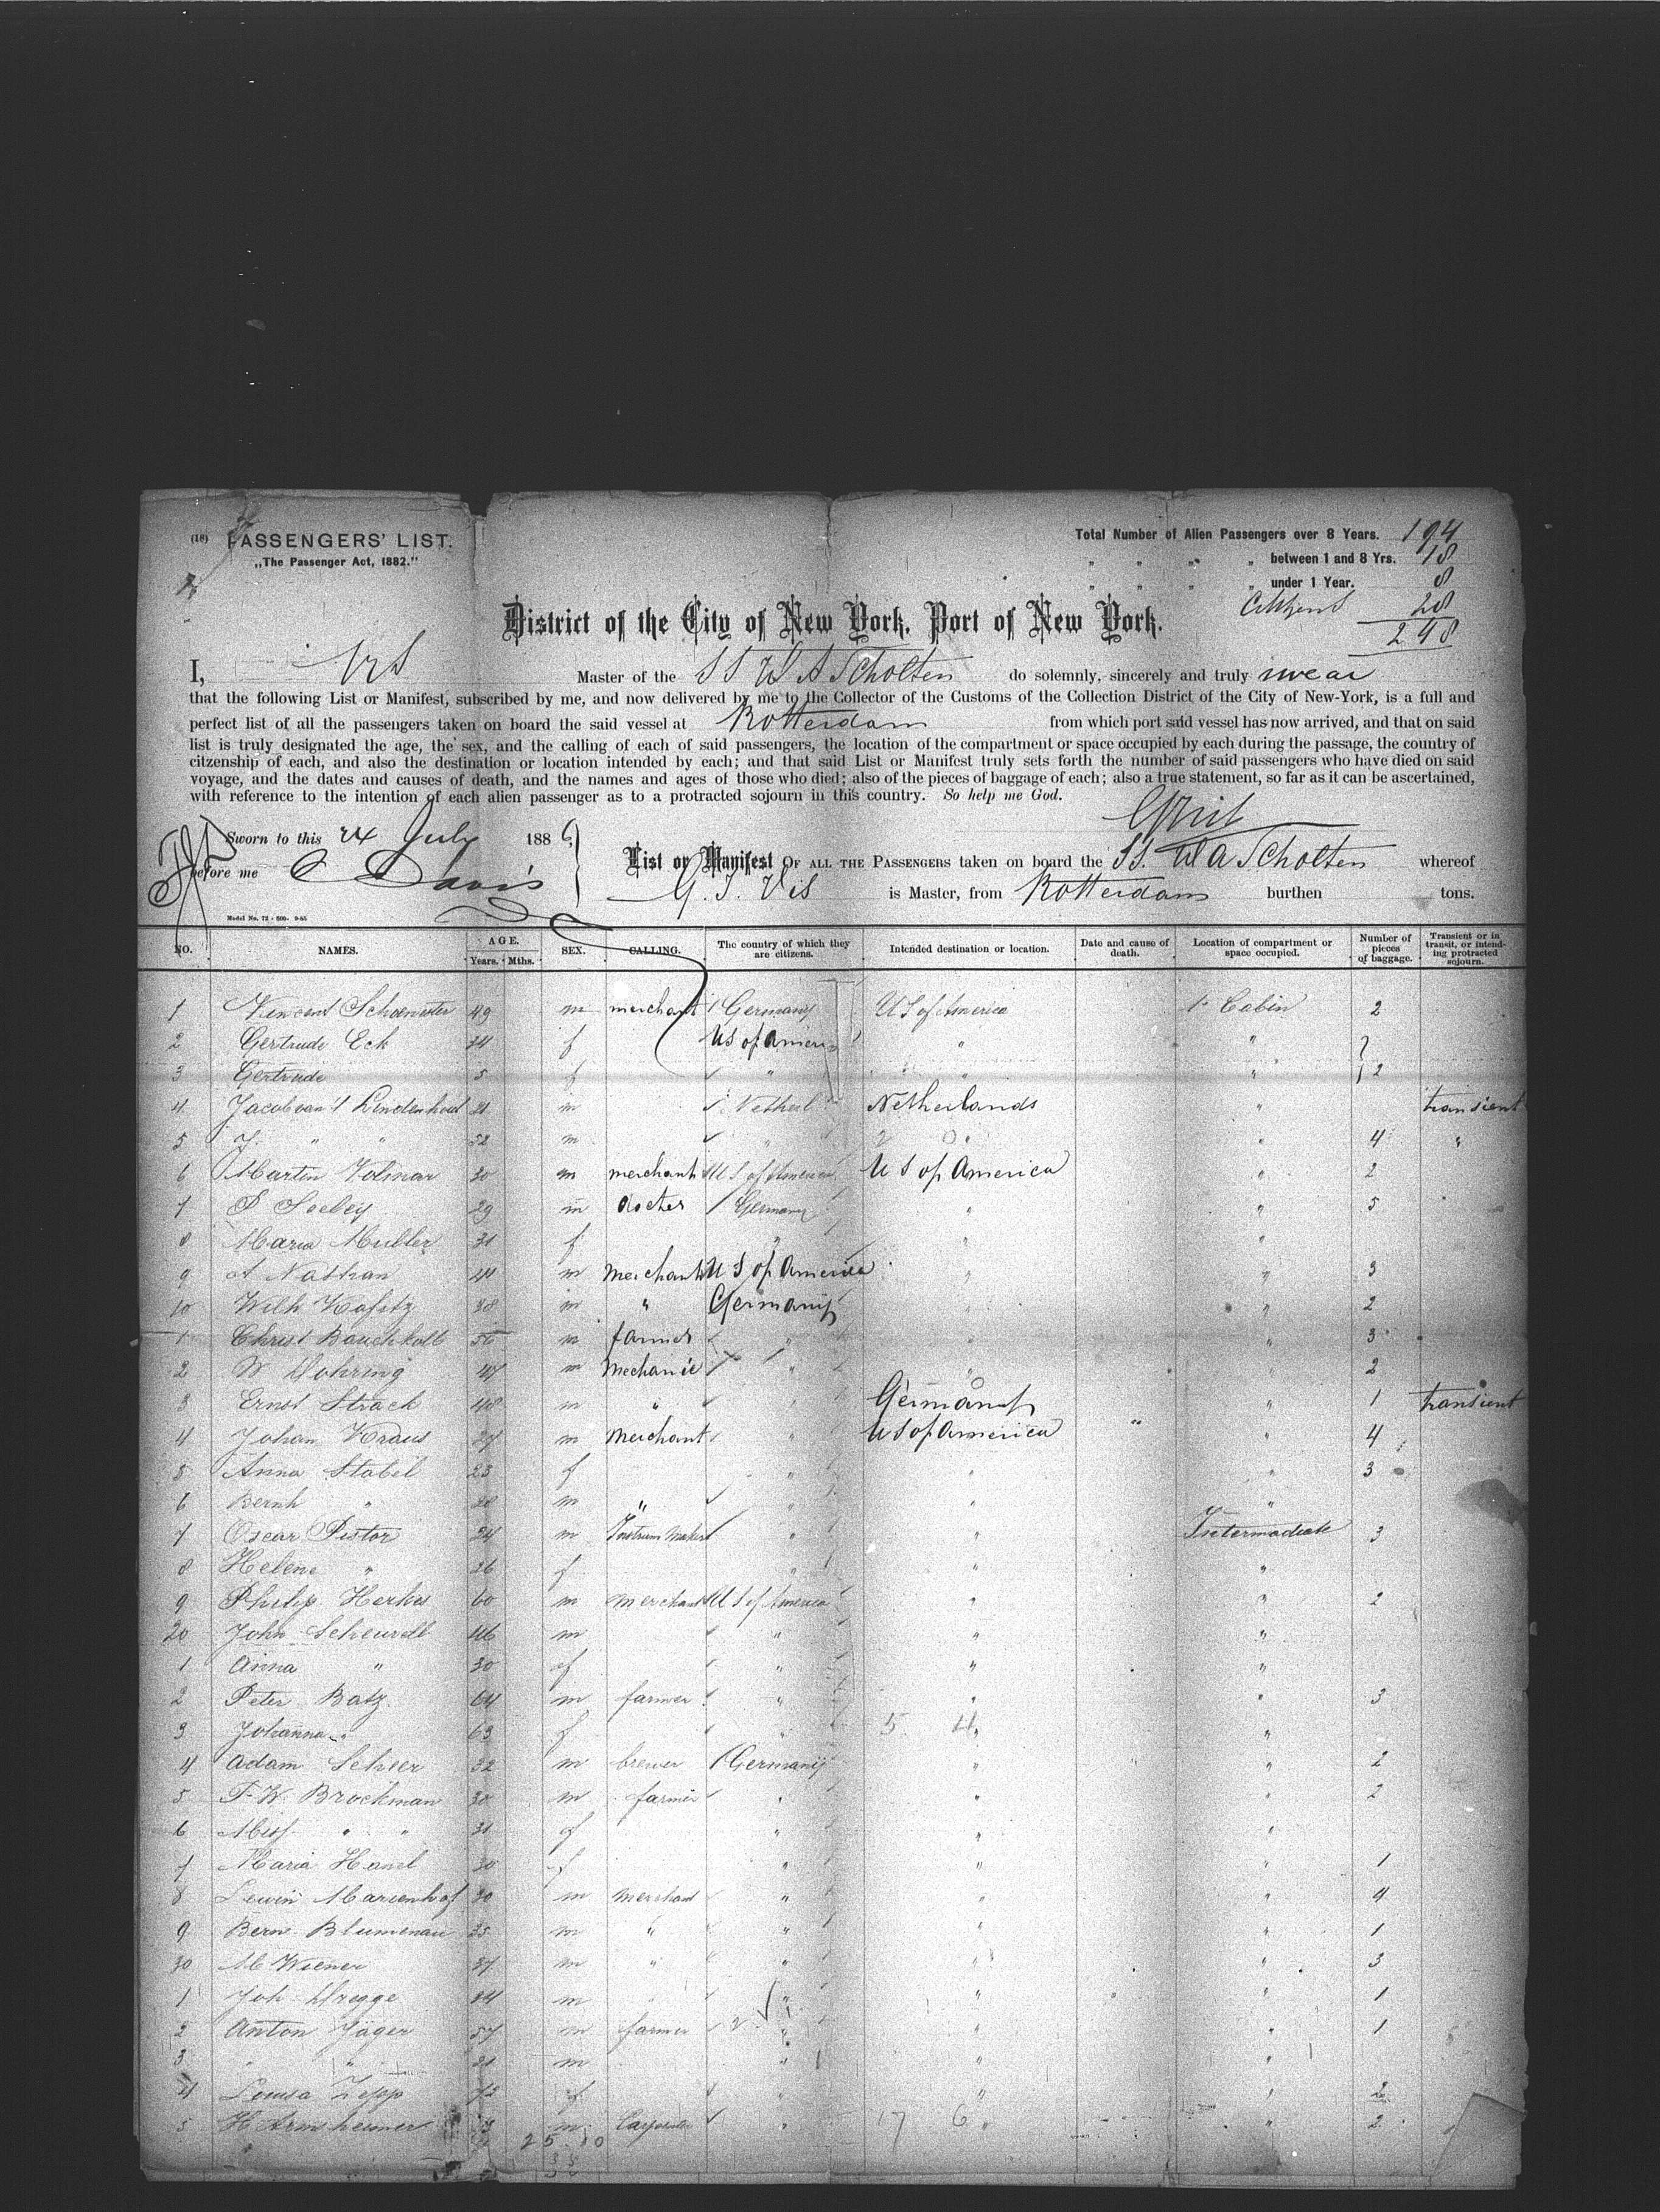 (18) PASSENGERS' LIST.
„The Passenger Act, 1882."
Total Number of Alien Passengers over 8 Years. 194
„ „ „ „ between 1 and 8 Yrs. 18
„ „ „ „ under 1 Year. 8
Citizens 28
248
District of the City of New York, Port of New York.
I, Vis Master of the SS W A Scholten do solemnly, sincerely and truly swear
that the following List or Manifest, subscribed by me, and now delivered by me to the Collector of the Customs of the Collection District of the City of New-York, is a full and
perfect list of all the passengers taken on board the said vessel at Rotterdam from which port said vessel has now arrived, and that on said
list is truly designated the age, the sex, and the calling of each of said passengers, the location of the compartment or space occupied by each during the passage, the country of
citzenship of each, and also the destination or location intended by each; and that said List or Manifest truly sets forth the number of said passengers who have died on said
voyage, and the dates and causes of death, and the names and ages of those who died; also of the pieces of baggage of each; also a true statement, so far as it can be ascertained,
with reference to the intention of each alien passenger as to a protracted sojourn in this country. So help me God.
Sworn to this 24 July 1886
before me C Davis
List or Manifest OF ALL THE PASSENGERS taken on board the SS. W A Scholten whereof
G. J. Vis is Master, from Rotterdam burthen tons.
Model No. 72 - 500- 9-85
NO. NAMES. AGE. Years. Mths. SEX. CALLING. The country of which they are citizens. Intended destination or location. Date and cause of death. Location of compartment or space occupied. Number of pieces of baggage. Transient or in transit, or intending protracted sojourn.
1 Vincent 49 m merchant Germany US of America 1 Cabin 2
2 Gertrude Eck 24 f US of America " "
3 Gertrude 5 f " " " 2
4 Jacob van 't Lindenhout 21 m Netherl Netherlands " transient
5 J. " " 52 m " " " 4 "
6 Martin Volmar 30 m merchant U S of America U S of America " 2
7 S Seeley 29 m doctor Germany " " 5
8 Maria Muller 31 f " " "
9 A Nathan 44 m merchant U S of America " " 3
10 Wilh 38 m " Germany " " 2
1 Christ Bouchholt 56 m farmer " " " 3
2 W Dohring 47 m Mechanic " " " 2
3 Ernst Strack 48 m " " Germany " 1 transient
4 Johan Kraus 27 m Merchant " US of America " 4
5 Anna Stabel 23 f " " " 3
6 Bernh " 28 m " " " "
7 Oscar Pistor 24 m Instrum maker " " Intermediate 3
8 Helene " 26 f " " "
9 Philip Herkes 60 m merchant U S of America " " 2
20 John Scheurell 46 m " " "
1 Anna " 30 f " " "
2 Peter Batz 64 m farmer " " " 3
3 Johanna " 63 f " " "
4 Adam Scheer 32 m brewer Germany " " 2
5 F. W. Brockman 30 m farmer " " " 2
6 Miss " " 31 f " " "
7 Maria Hanel 30 f " " " 1
8 Lewin Marienhof 30 m Merchant " " " 4
9 Bern Blumenau 35 m " " " " 1
30 M Wiener 37 m " " " " 3
1 Joh Dregge 24 m " " " 1
2 Anton Jäger 57 m farmer " " " 1
3 " " 21 m " " "
4 Louisa 72 f " " " 2
5 H Armsheimer m " " " 2
25 10